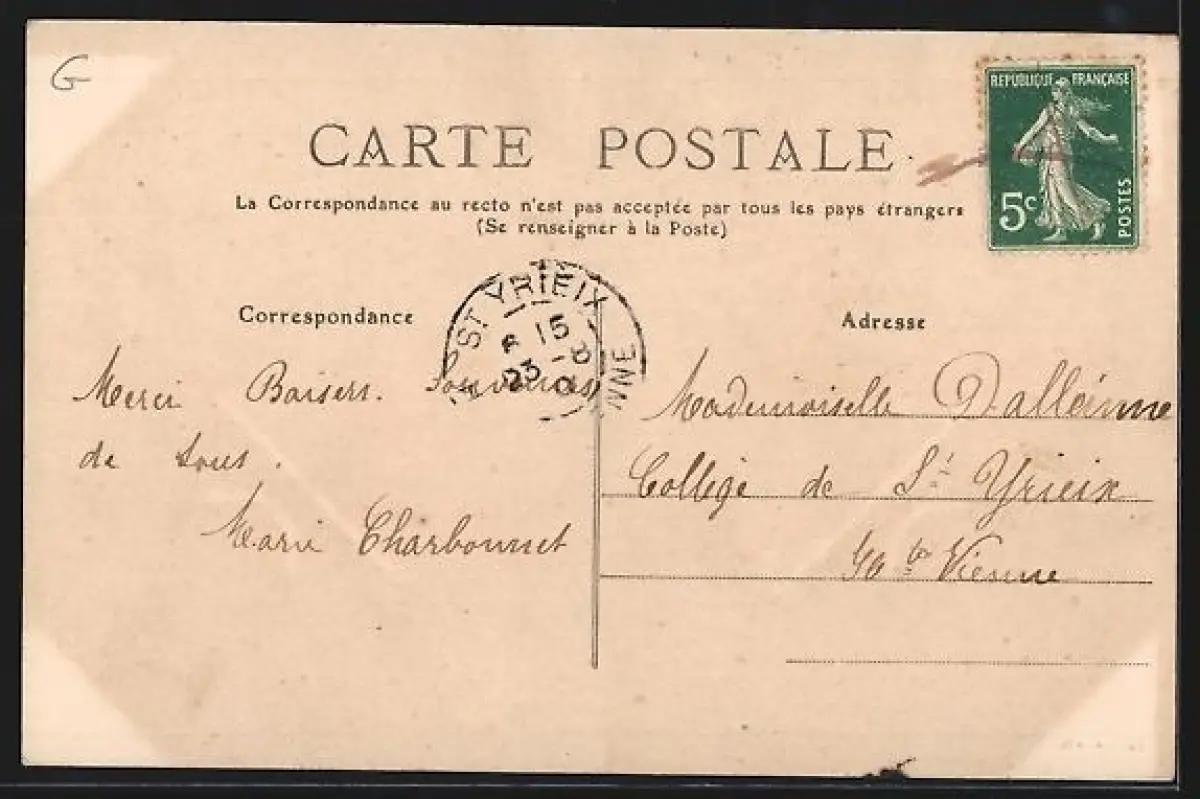 G
REPUBLIQUE FRANÇAISE
5c
POSTES
CARTE POSTALE
La Correspondance au recto n'est pas acceptée par tous les pays étrangers
(Se renseigner à la Poste)
ST YRIEIX
15
23 -8
VNNE
Correspondance
Merci Baisers. Souvenirs
de tous.
Marie Charbonnet
Adresse
Mademoiselle Dalléinne
Collège de St Yrieix
Hte Vienne